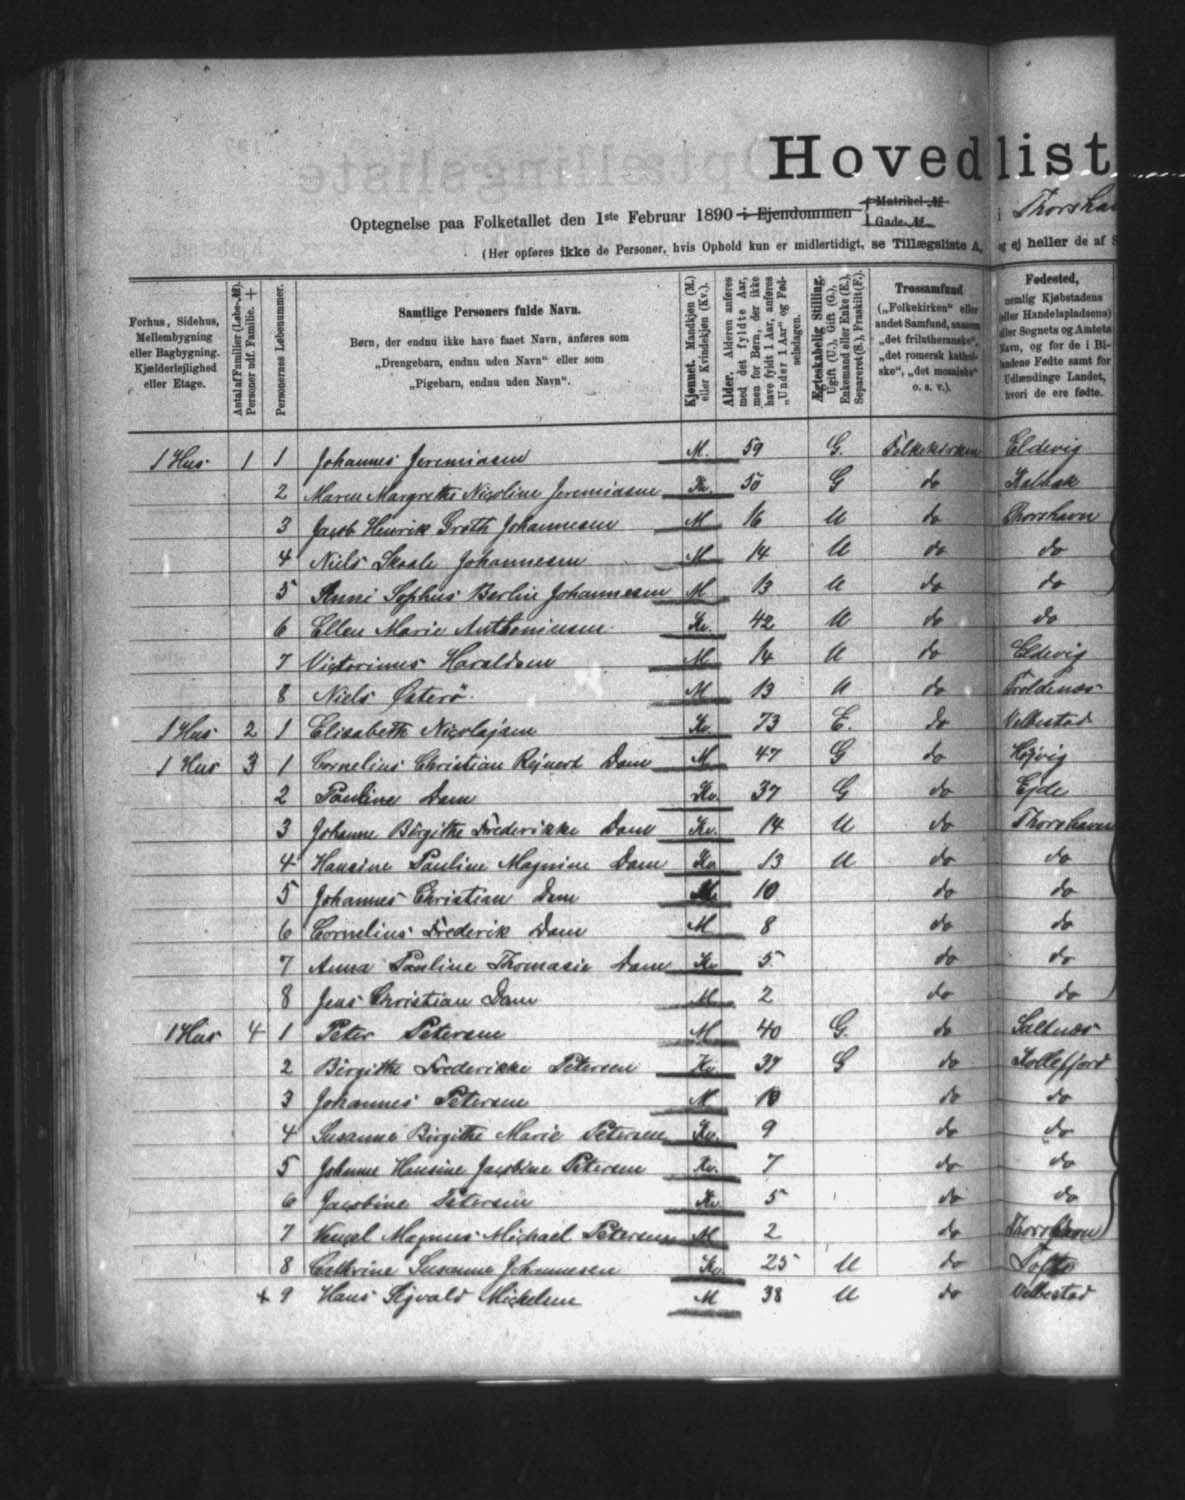 Hovedlist
Optegnelse paa Folketallet den 1ste Februar 1890 i Ejendommen { Matrikel-№ Gade-№ i Thorshav
(Her opføres ikke de Personer, hvis Ophold kun er midlertidigt, se Tillægsliste A, og ej heller de af S
Forhus, Sidehus, Mellembygning eller Bagbygning. Kjælderlejlighed eller Etage.
Antal af Familier (Løbe-№). Personer udf. Familie. +
Personernes Løbenummer.
Samtlige Personers fulde Navn.
Børn, der endnu ikke have faaet Navn, anføres som
„Drengebarn, endnu uden Navn“ eller som
„Pigebarn, endnu uden Navn“.
Kjønnet. Mandkjøn (M.) eller Kvindekjøn (Kv.).
Alder. Alderen anføres med det fyldte Aar, men for Børn, der ikke have fyldt 1 Aar, anføres „Under 1 Aar“ og Fødselsdagen.
Ægteskabelig Stilling. Ugift (U.), Gift (G.), Enkemand eller Enke (E.), Separeret (S.), Fraskilt (F.).
Trossamfund („Folkekirken“ eller andet Samfund, saasom „det frilutheranske“, „det romersk katholske“, „det mosaiske“ o. s. v.).
Fødested, nemlig Kjøbstadens eller Handelspladsens) eller Sognets og Amtets Navn, og for de i Bilandene Fødte samt for Udlændinge Landet, hvori de ere fødte.
1 Hus 1 1 Johannes Jeremiasen M. 59 G. Folkekirken Eldevig
2 Maren Margrethe Nicoline Jeremiasen Kv. 50 G do Kalbak
3 Jacob Henrik Groth Johannesen M 16 U do Thorshavn
4 Niels Skaale Johannesen M 14 U do do
5 Sophus Berlin Johannesen M 13 U do do
6 Ellen Marie Anthoniusen Kv. 42 U do do
7 Victorinus Haraldsen M 14 U do Eldevig
8 Niels Østerø M 13 U do Troldenæs
1 Hus 2 1 Elisabeth Nicolajsen Kv. 73 E. do Velbestad
1 Hus 3 1 Cornelius Christian Rejnert Dam M 47 G do Højvig
2 Pauline Dam Kv. 37 G do Ejde
3 Johanne Birgithe Frederikke Dam Kv. 14 U do Thorshavn
4 Hansine Pauline Magnine Dam Kv 13 U do do
5 Johannes Christian Dam M 10 do do
6 Cornelius Frederik Dam M 8 do do
7 Anna Pauline Thomasie Dam Kv 5 do do
8 Jens Christian Dam M 2 do do
1 Hus 4 1 Peter Petersen M 40 G. do Saltnæs
2 Birgithe Frederikke Petersen Kv. 37 G do Kollefjord
3 Johannes Petersen M 10 do do
4 Susanne Birgithe Marie Petersen Kv. 9 do do
5 Johanne Hansine Jacobine Petersen Kv. 7 do do
6 Jacobine Petersen Kv 5 do do
7 Magnus Michael Petersen M 2 do Thorshavn
8 Cathrine Susanne Johannesen Kv 25 U do Tofte
+ 9 Hans Mickelsen M 38 U do Velbestad